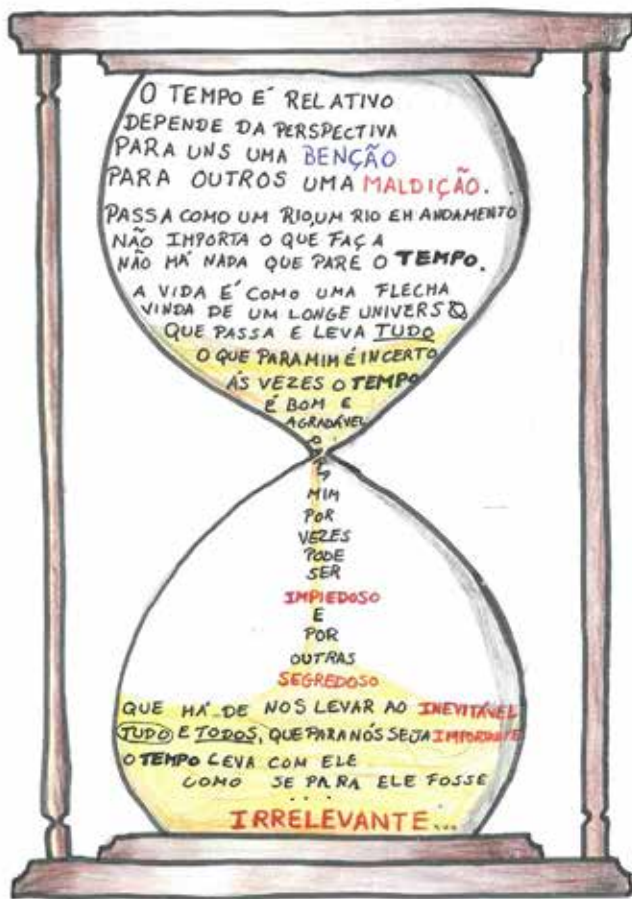 O TEMPO É RELATIVO
DEPENDE DA PERSPECTIVA
PARA UNS UMA BENÇÃO
PARA OUTROS UMA MALDIÇÃO.
PASSA COMO UM RIO, UM RIO EM ANDAMENTO
NÃO IMPORTA O QUE FAÇA
NÃO HÁ NADA QUE PARE O TEMPO.
A VIDA É COMO UMA FLECHA
VINDA DE UM LONGE UNIVERSO
QUE PASSA E LEVA TUDO
O QUE PARA MIM É INCERTO
ÁS VEZES O TEMPO
É BOM E
AGRADÁVEL
PARA
MIM
POR
VEZES
PODE
SER
IMPIEDOSO
E
POR
OUTRAS
SEGREDOSO
QUE HÁ-DE NOS LEVAR AO INEVITÁVEL
TUDO E TODOS, QUE PARA NÓS SEJA IMPORTANTE
O TEMPO LEVA COM ELE
COMO SE PARA ELE FOSSE
...
IRRELEVANTE...